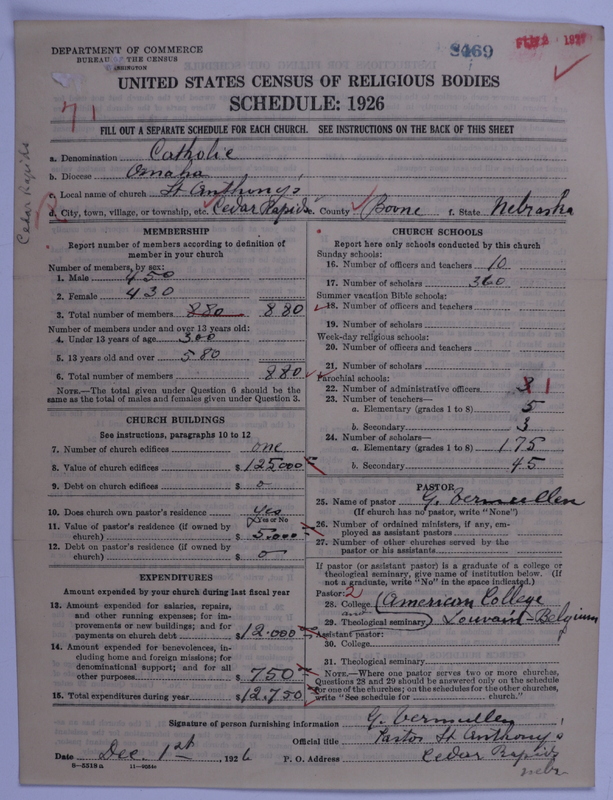 DEPARTMENT OF COMMERCE
BUREAU OF THE CENSUS
WASHINGTON
8469
UNITED STATES CENSUS OF RELIGIOUS BODIES
SCHEDULE: 1926
71
FILL OUT A SEPARATE SCHEDULE FOR EACH CHURCH. SEE INSTRUCTIONS ON THE BACK OF THIS SHEET
Cedar Rapids
a. Denomination Catholic
b. Diocese Omaha
c. Local name of church St Anthony's
d. City, town, village, or township, etc. Cedar Rapids e. County Boone f. State Nebraska
MEMBERSHIP
Report number of members according to definition of
member in your church
Number of members, by sex:
1. Male 450
2. Female 430
3. Total number of members 880 880
Number of members under and over 13 years old:
4. Under 13 years of age 300
5. 13 years old and over 580
6. Total number of members 880
NOTE.—The total given under Question 6 should be the
same as the total of males and females given under Question 3.
CHURCH BUILDINGS
See instructions, paragraphs 10 to 12
7. Number of church edifices one
8. Value of church edifices $125000
9. Debt on church edifices $ 0
10. Does church own pastor's residence? yes
Yes or No
11. Value of pastor's residence (if owned by
church) $ 5,000
12. Debt on pastor's residence (if owned by
church) $ 0
EXPENDITURES
Amount expended by your church during last fiscal year
13. Amount expended for salaries, repairs,
and other running expenses; for im-
provements or new buildings; and for
payments on church debt $12.000
14. Amount expended for benevolences, in-
cluding home and foreign missions; for
denominational support; and for all
other purposes $ 750
15. Total expenditures during year $12.750
CHURCH SCHOOLS
Report here only schools conducted by this church
Sunday schools:
16. Number of officers and teachers 10
17. Number of scholars 360
Summer vacation Bible schools:
18. Number of officers and teachers
19. Number of scholars
Week-day religious schools:
20. Number of officers and teachers
21. Number of scholars
Parochial schools:
22. Number of administrative officers 1
23. Number of teachers—
a. Elementary (grades 1 to 8) 5
b. Secondary 3
24. Number of scholars—
a. Elementary (grades 1 to 8) 175
b. Secondary 45
PASTOR
25. Name of pastor G. Vermullen
(If church has no pastor, write "None")
26. Number of ordained ministers, if any, em-
ployed as assistant pastors
27. Number of other churches served by the
pastor or his assistants
If pastor (or assistant pastor) is a graduate of a college or
theological seminary, give name of institution below. (If
not a graduate, write "No" in the space indicated.)
Pastor: 2
28. College (American College
and
29. Theological seminary) Louvain-Belgium
Assistant pastor:
30. College
31. Theological seminary
NOTE.—Where one pastor serves two or more churches,
Questions 28 and 29 should be answered only on the schedule
for one of the churches; on the schedules for the other churches,
write "See schedule for ______ church."
Signature of person furnishing information G. Vermullen
Official title Pastor St Anthony's
Date Dec. 1st, 1926 P. O. Address Cedar Rapids
Nebr
8—5318a 11—9564